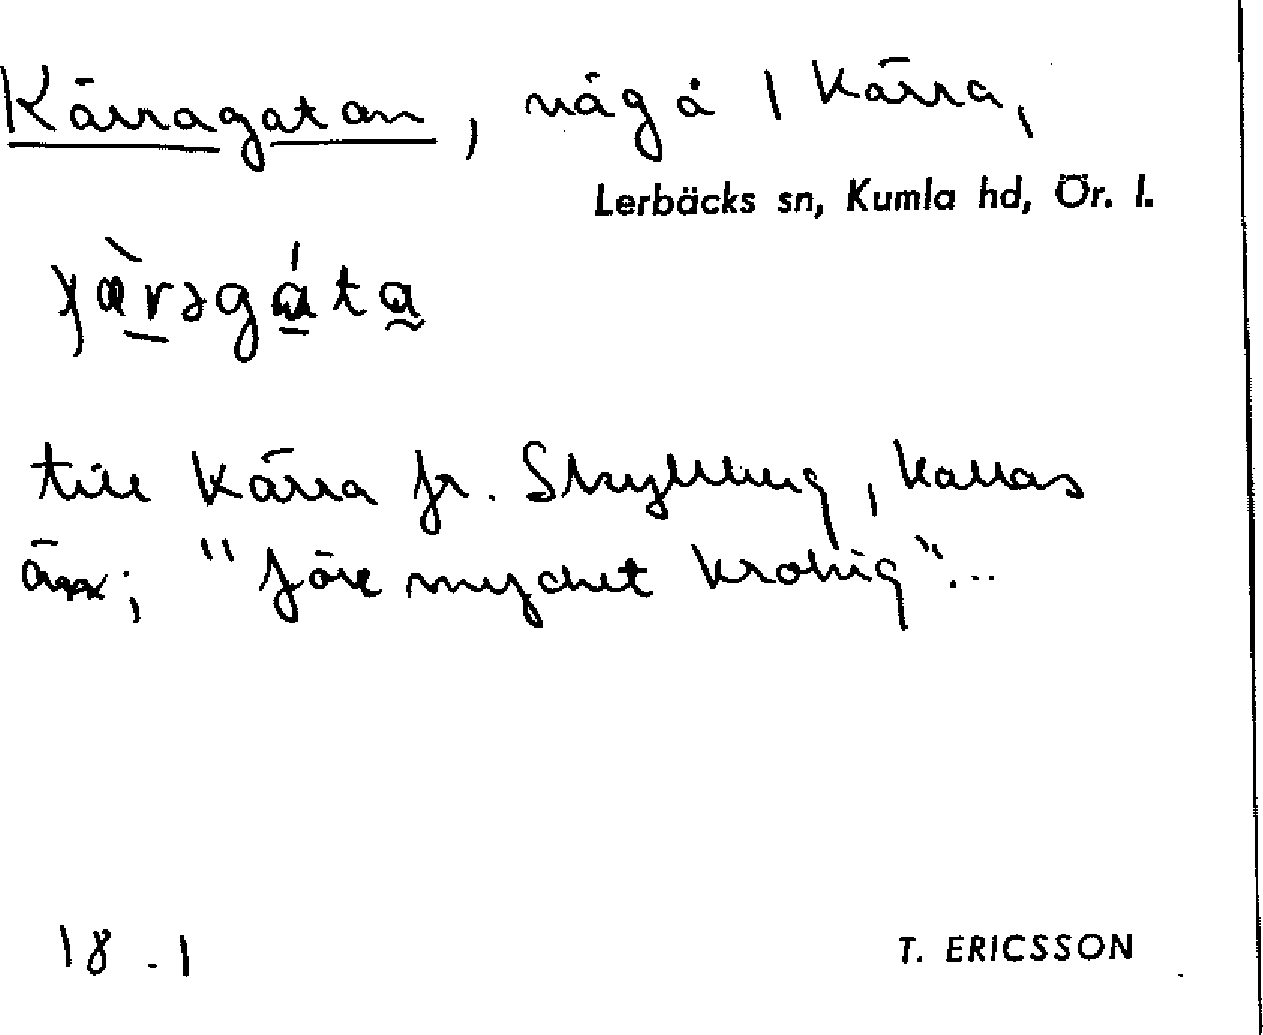 Kärragatan, väg å 1 Kärra,
Lerbäcks sn, Kumla hd, Ör. l.
till Kärra fr. Skyllberg, kallas
än; "före mycket krokig"...
18.1
T. ERICSSON